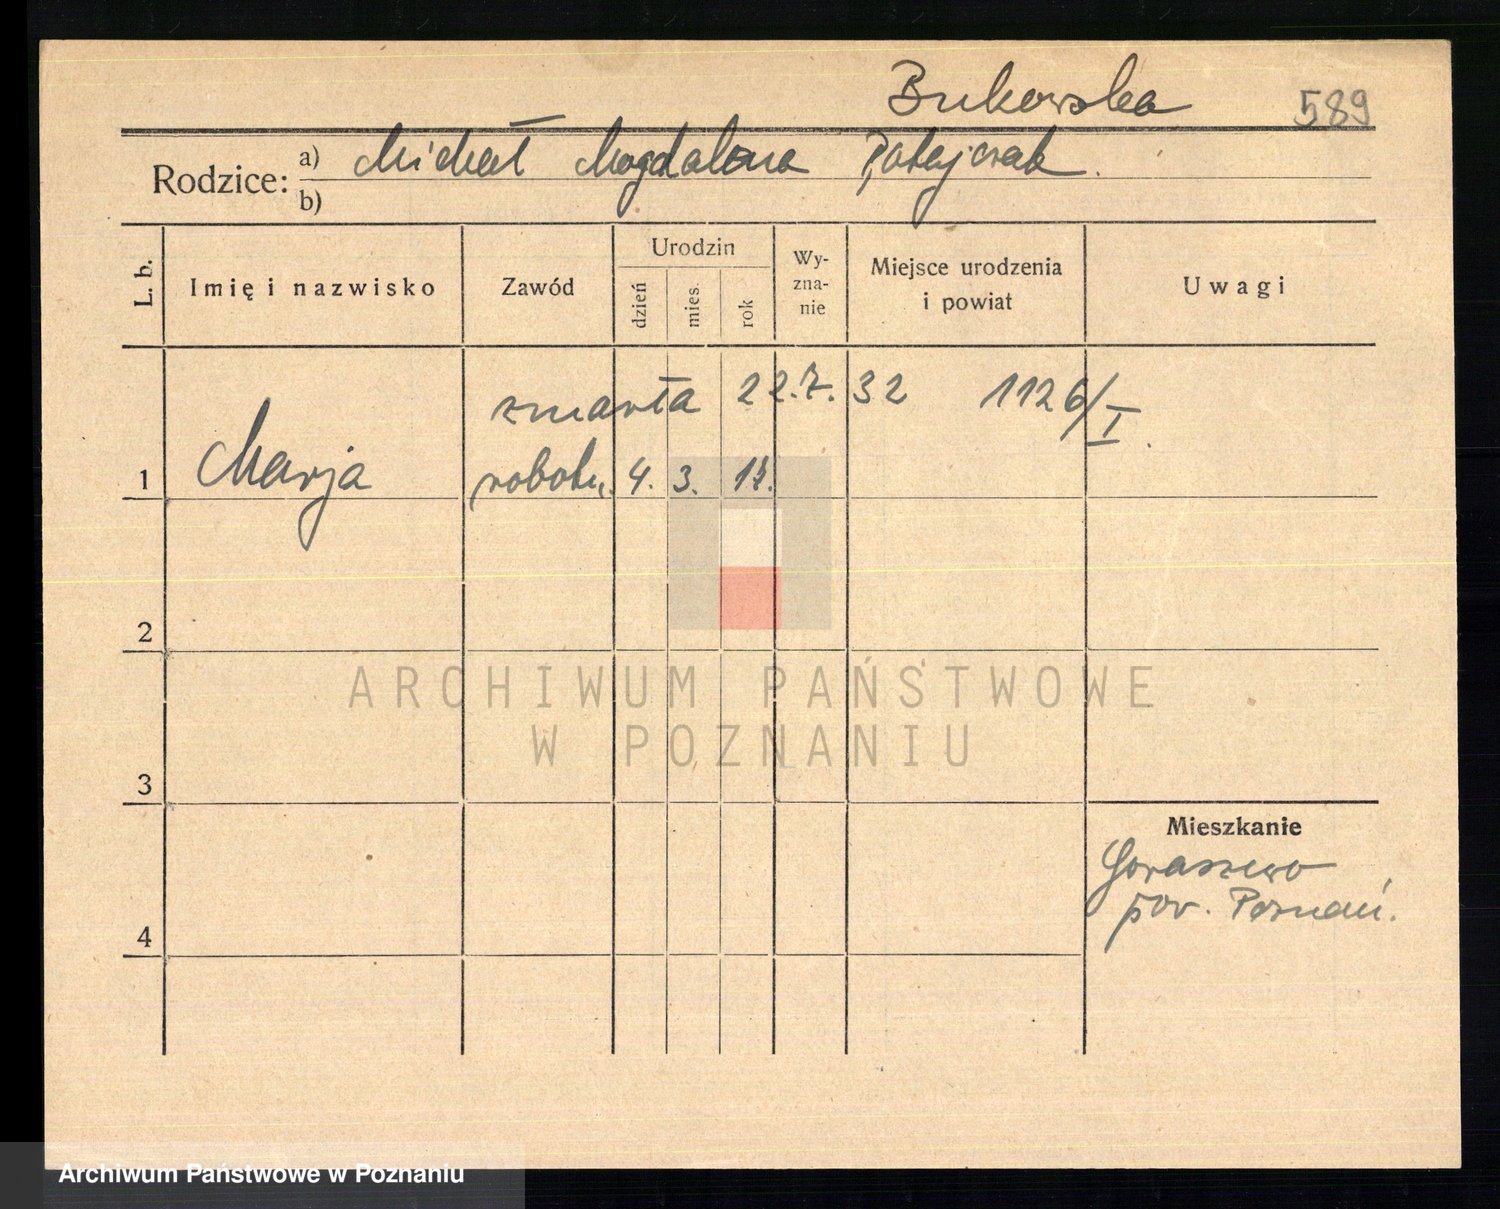 Bukowska 589
Rodzice: a) Michał Magdalena Patajczak.
b)
L. b. Imię i nazwisko Zawód Urodzin dzień mies. rok Wy-zna-nie Miejsce urodzenia i powiat Uwagi
zmarła 22.7.32 1126/I.
1 Marja robotn. 4. 3.
2
ARCHIWUM PAŃSTWOWE
W POZNANIU
3
Mieszkanie
Goraszewo
pow. Poznań.
4
Archiwum Państwowe w Poznaniu